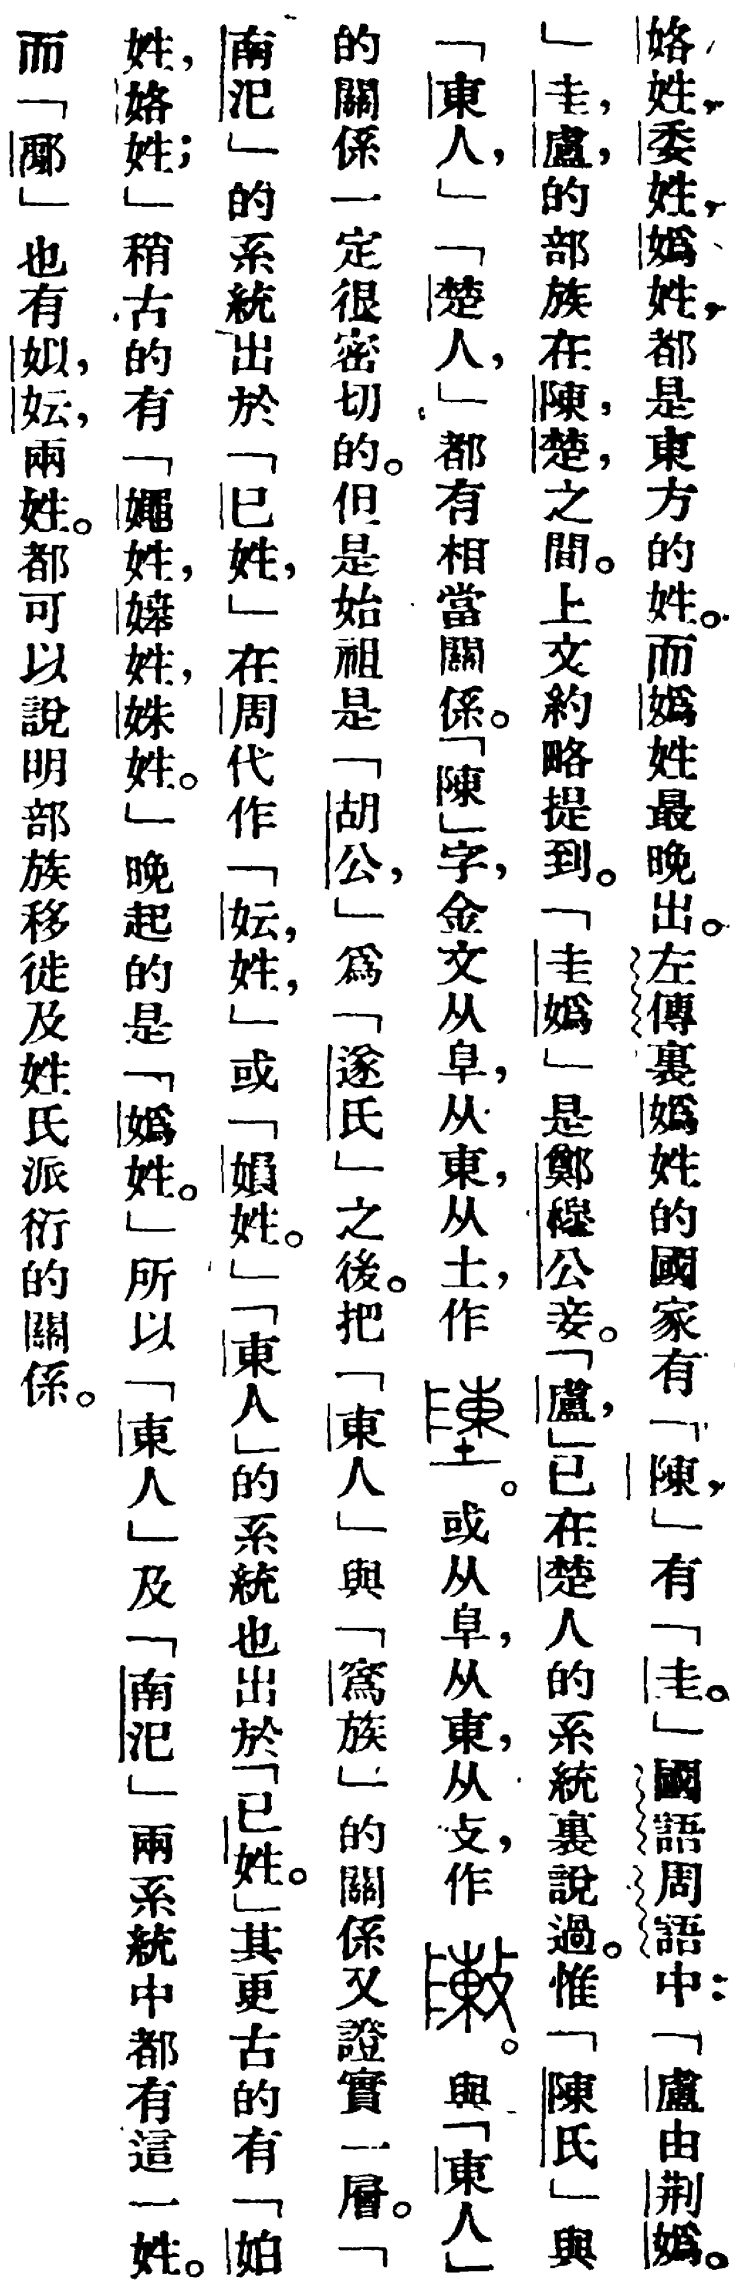 姺姓，委姓，嬀姓，都是東方的姓。而嬀姓最晚出。左傳裏嬀姓的國家有「陳，」有「圭。」國語周語中：「盧由荆嬀。
」圭，盧，的部族在陳，楚，之間。上文約略提到。「圭嬀」是鄭穆公妾。「盧，」已在楚人的系統裏說過。惟「陳氏」與
「東人，」「楚人，」都有相當關係。「陳」字，金文从阜，从東，从土，作 𨻰。或从阜，从東，从攴，作 。與「東人」
的關係一定很密切的。但是始祖是「胡公，」爲「遂氏」之後。把「東人」與「寪族」的關係又證實一層。「
南汜」的系統出於「已姓，」在周代作「妘，姓，」或「媍姓。」「東人」的系統也出於「已姓。」其更古的有「㚰
姓，姺姓；」稍古的有「㛴姓，嫴姓，姝姓。」晚起的是「嬀姓。」所以「東人」及「南汜」兩系統中都有這一姓。
而「鄅」也有姒，妘，兩姓。都可以說明部族移徙及姓氏派衍的關係。